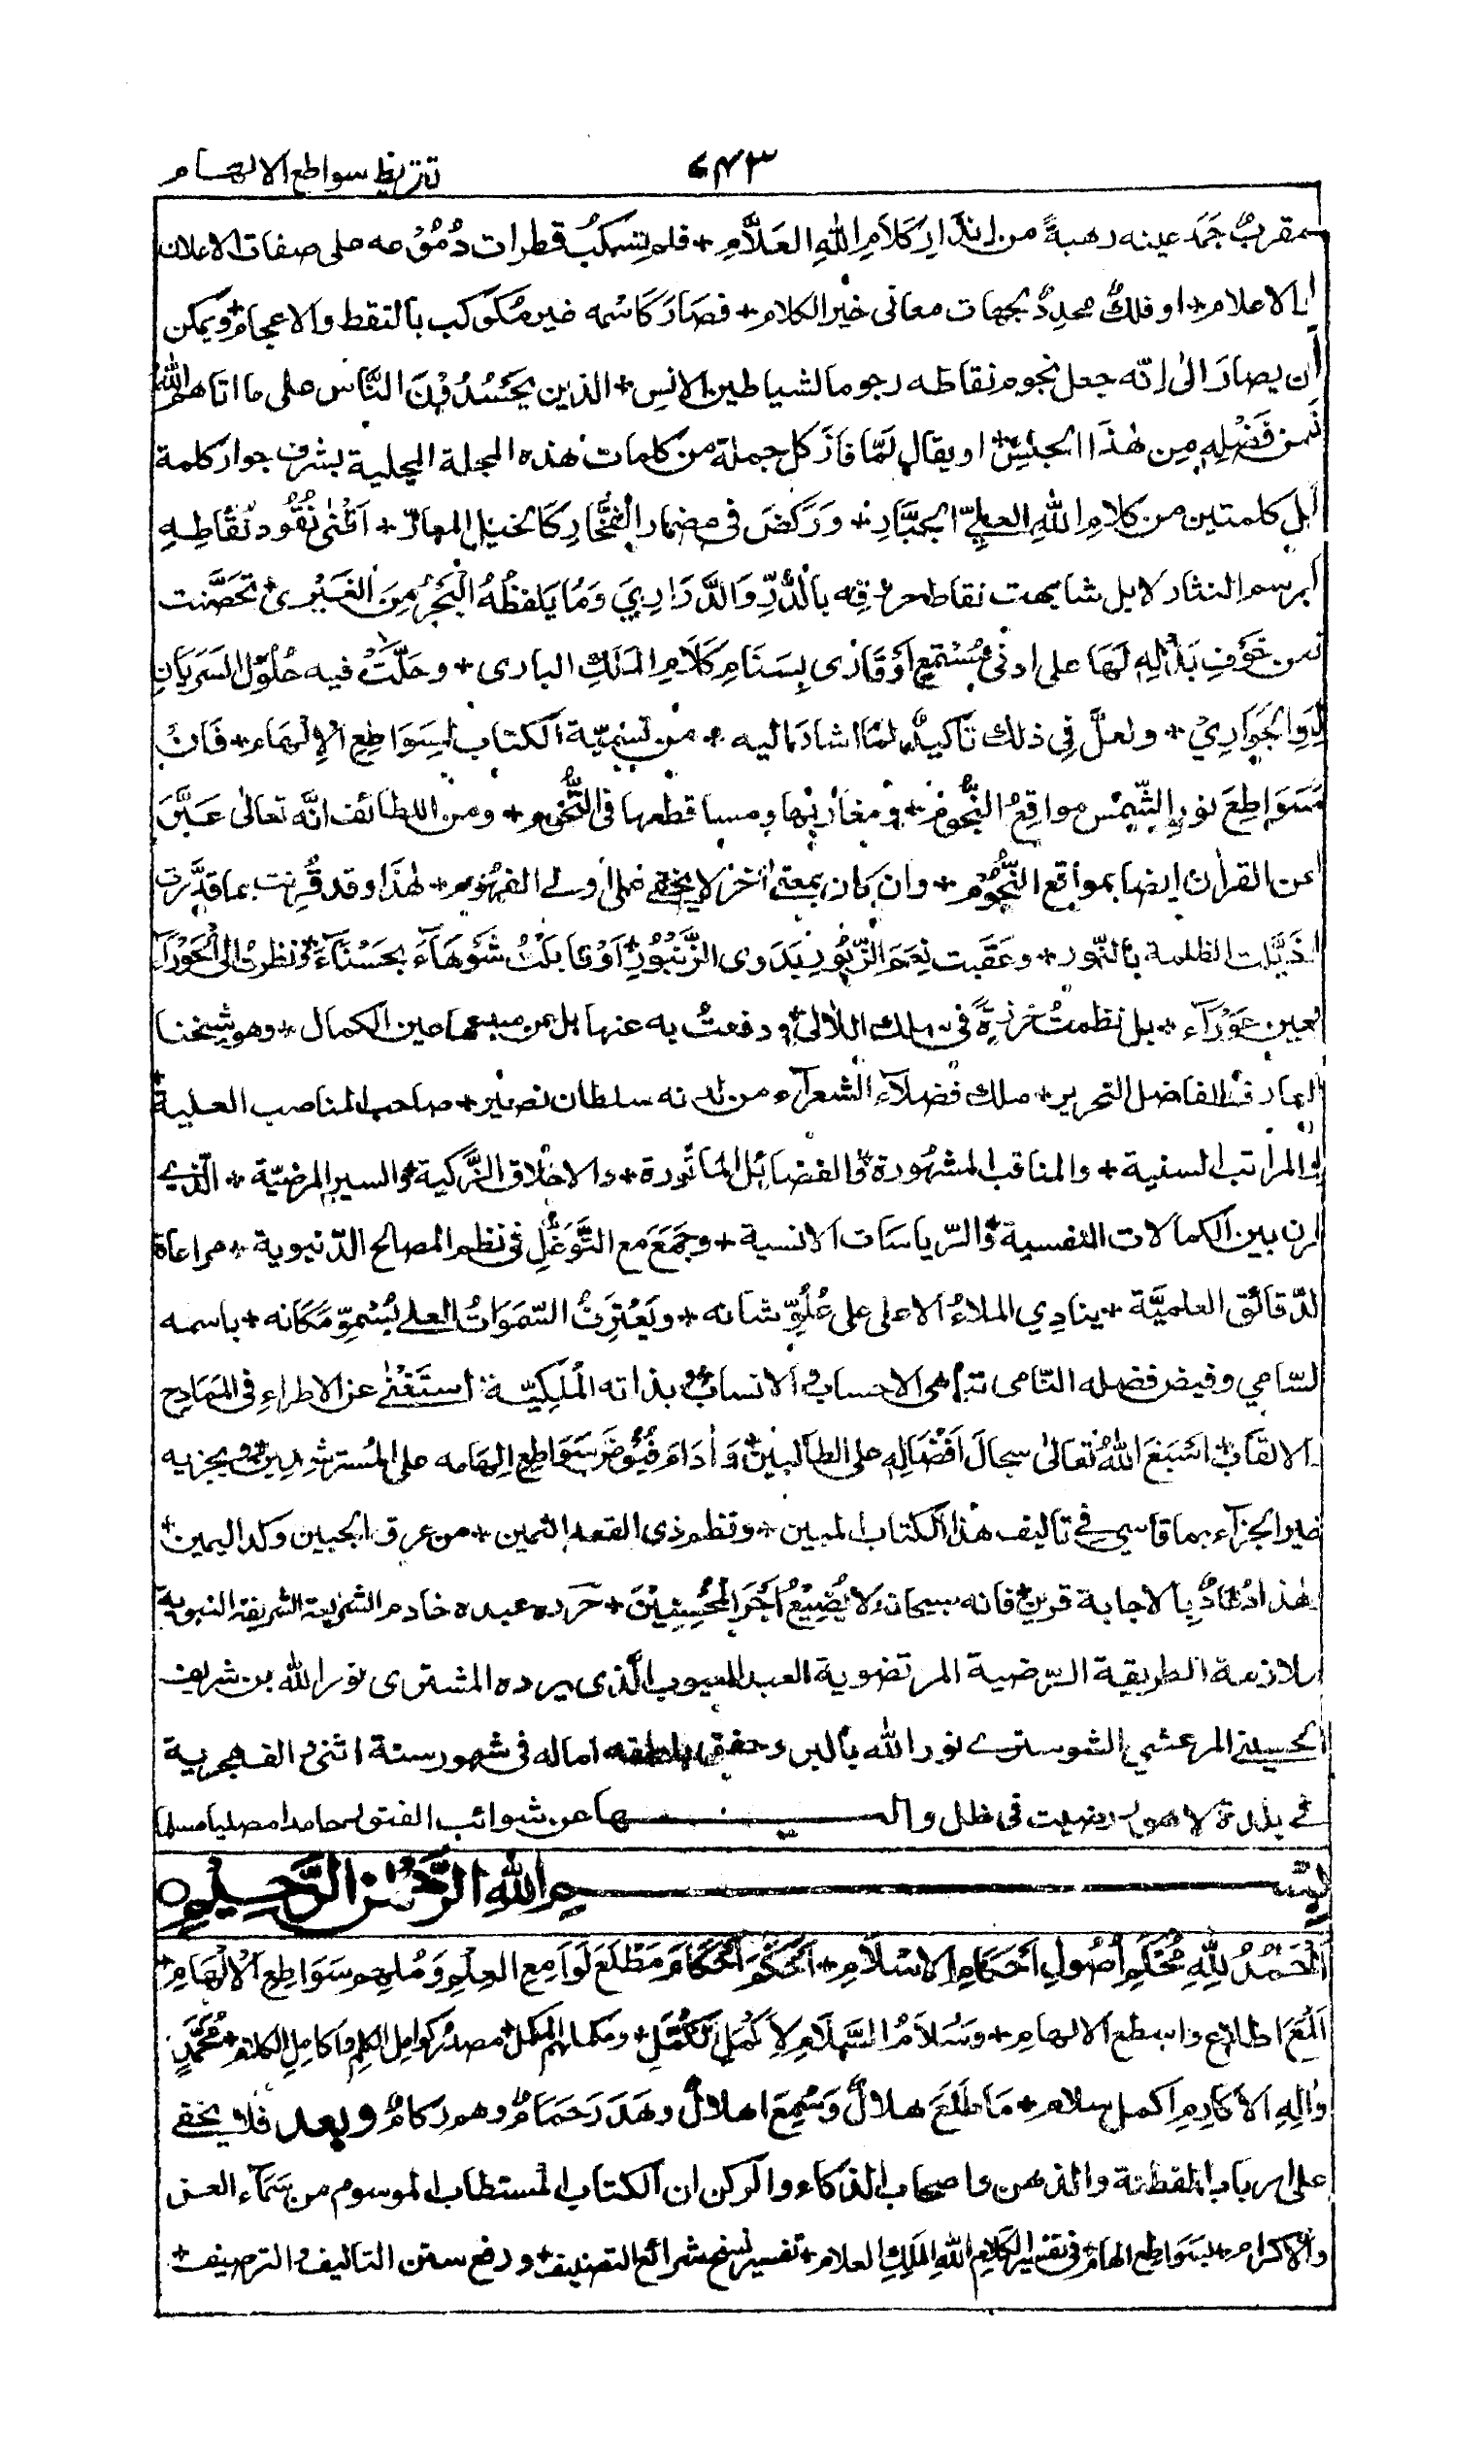 ٧٤٣ تقريظ سواطع الالهام
مقربٌ جَمَدَ عينه رهبةً من اِنذارِ كَلَامِ اللهِ العَلَّامِ + فلم تسكبْ قطرات دُمُوْعه على صفات الاعلان
الاعلام + او فلكٌ محددٌ بجهات معانى خير الكلام + فصَارَ كَاسْمه غير مُكَوكب بالنقط والاعجام + ويمكن
أن يصارَ الىٰ اِنّه جعل نجوم نقاطه رجوما لشياطين الانس + الذين يَحْسُدُوْنَ النَّاس على ما اتاهم اللهُ
من فَضْلِهٖ مِن هٰذَا الجنْسِ + او يقال لَمَّا فَازَ كل جملة من كلمات هٰذه المجلة الجلية بشرف جوار كلمة
بل كلمتين من كلامِ اللهِ العلِيِّ الجبَّارِ + وَرَكَضَ فى مضمار الْفَخَّارِ كَالخيل المهارّ + اَفْنٰى نُقُوْد نُقَاطِهِ
برسم النثار لا بل شابهت نقاط حروفه بالدُّرِّ وَالدَّرَارِيَ وَمَا يَلفظُهُ الْبَحْرُ مِنَ الْعَنْبَرِيْ تحَصَّنت
من خَوْفِ بَذْلِهٖ لَهَا على ادنٰى مُسْتَمِعٍ اَوْ قَارٰى بِسَنَامِ كَلَامِ المَلِكِ البارى + وحَلَّتْ فيه حُلُوْلَ السَّرَيَانِ
وَالجَوَارِيْ + ولعلَّ فِي ذلك تَاكيدٌ لمَا اشارَ اليه + مِن تَسْمِيَة الكتاب بِسَوَاطِعِ الْاِلْهَامِ + فَانَّ
سَوَاطِعَ نورِ الشَّمْسِ مواقعُ النُّجُوْمِ + ومغَارِبُها ومساقطها فى التُّخُوْمِ + ومن اللطائف انَّه تعالٰى عَبَّرَ
عن القراٰن ايضا بمواقع النُّجُوْم + وان كان بمعنٰى اٰخر لا يخفٰى على اُولى الفهوم + هٰذَا وقد قُرنت بما قدَّرت
الظلمة بالنّور + وعَقَبت نِعَمَ الزَّبُورِ بَدَوى الزَّنْبُوْرِ + اَوْ قَابَلْتُ شَوْهَآءَ بِحَسْنَآءَ + ونظرتُ الى الحَوْرَآءِ
بعين عَوْرَآء + بل نظمتُ خَرَزَةً فى سلك اللاٰلى + ودفعتُ به عنها بل عن مبدعها عين الكمال + وهو شيخنا
العارف الفاضل النحرير + ملك فضلَآءِ الشعرَآء من لدنه سلطان نصير + صاحب المناصب العلية
والمراتب السنية + والمناقب المشهورة والفضائل الماثورة + والاخلاق الزَّكية والسير المرضيّة + الّذى
قرن بين الكمالات النفسية والرّياسَات الانسية + وجَمَعَ مع التَّوَغُّلِ فى نظم المصالح الدّنيوية + مراعاة
الدّقائق العلميَّة + ينادِي الملاءُ الاعلٰى على عُلُوِّ شانه + ويَعْتَرِفُ السَّمٰوَاتُ العلى بُسُمُوِّ مَكَانه + باسمه
السّامي وفيض فضله النّامى تباهى الاحساب والانساب وبذاته المَلَكِيّة استَغْنٰى عن الاطراءِ فى المَمَادِحِ
الالقاب + اَسْبَغَ اللهُ تعَالٰى سجالَ اَفْضَالِهٖ على الطالبين + وَاَدَامَ فُيُوْضَ سَوَاطِع اِلهَامه على المُسترشِدِين + ويجزيه
خير الجزآء بما قاسٰى فى تاليف هذا الكتاب المبين + ونظم ذى العقد الثمين + من عرق الجبين وكد اليمين +
هٰذا دُعَاءٌ بالاجابة قرين + فانه سبحانه لَا يُضِيْعُ اَجْرَ المُحْسِنِيْنَ + حَرَّره عبده خادم الشريعة الشريفة النبوية
ملازمة الطريقة الرّضية المرتضوية العبد المعيوب الّذى يرده المشترى نور الله بن شريف
الحسينى المرعشي الشوسترى نور الله بالبر وحقق بلطفه اماله فى شهور سنة اثنى الف هجرية
فى بلدة لاهور رضيت فى ظل واليها عن شوائب الفتور حامدا مصليا مسلما
بِسْمِ اللهِ الرَّحْمٰنِ الرَّحِيْمِ
اَلْحَمْدُ لِلّٰهِ مُحْكِمِ اُصُولِ اَحْكَامِ الْاِسْلَامِ + اَحْكَمَ الحُكَّامَ مَطْلَعَ لَوَامِعِ العِلْمِ وَمُلْهِم سَوَاطِعِ الْاِلْهَامِ +
اَلْمَعَ اطلَاع واسطع الالهام + وسَلَامُ السَّلَامِ لِاَكْمَلِ الكُمَّلِ + ومكملهم المكمل + مصدَر كوامل الكلم واكامل الكلام + مُحَمَّدٍ
وَاٰلِهِ الاَكَارِمِ اكمل سلام + مَا طَلَعَ هلَالٌ وَسُمِعَ اهلالٌ وهَدَرَ حَمَامٌ وهمر ركامٌ وبعد فلا يخفٰى
على ارباب الفطنة والذهن واصحاب الذكاء والركن ان الكتاب المستطاب الموسوم من سَمَآءِ العز
والاكرام + بسَوَاطِع الهام + فى تفسير كلَامِ اللهِ المَلِكِ العلام + تفسير نسخ شرائع التصنيف + ورفع سنن التاليف والترصيف +